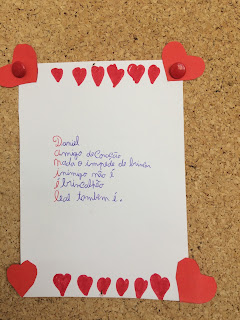 Daniel
amigo do Coração
nada o impede de brincar
inimigo não é
é brincalhão
leal também é.